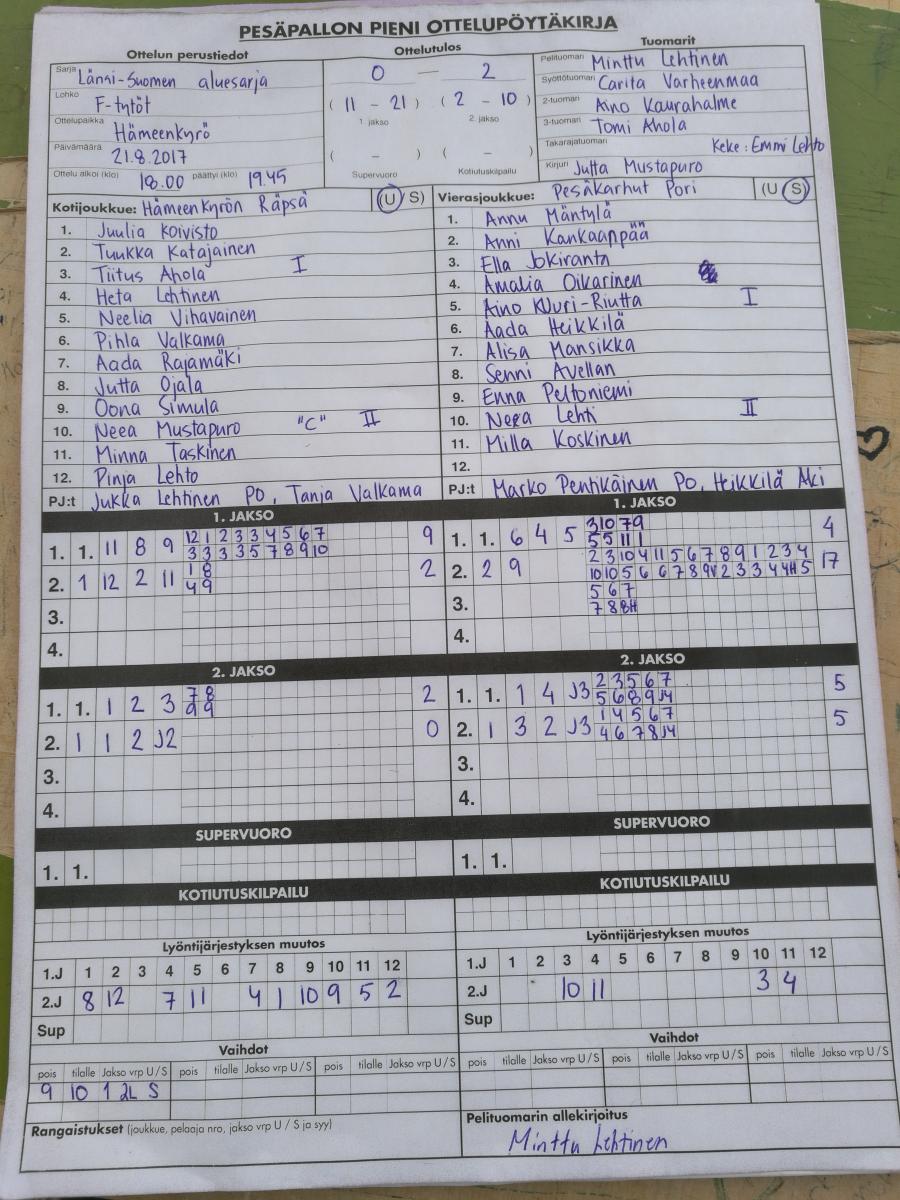 PESÄPALLON PIENI OTTELUPÖYTÄKIRJA
Ottelun perustiedot
Sarja Länsi-Suomen aluesarja
Lohko F-tytöt
Ottelupaikka Hämeenkyrö
Päivämäärä 21.8.2017
Ottelu alkoi (klo) 18.00 päättyi (klo) 19.45
Ottelutulos
0 — 2
( 11 - 21 ) ( 2 - 10 )
1. jakso 2. jakso
( - ) ( - )
Supervuoro Kotiutuskilpailu
Tuomarit
Pelituomari Minttu Lehtinen
Syöttötuomari Carita Varheenmaa
2-tuomari Aino Kaurahalme
3-tuomari Tomi Ahola
Takarajatuomari Keke: Emmi Lehto
Kirjuri Jutta Mustapuro
Kotijoukkue: Hämeenkyrön Räpsä (U/S)
1. Juulia Koivisto
2. Tuukka Katajainen
3. Tiitus Ahola I
4. Heta Lehtinen
5. Neelia Vihavainen
6. Pihla Valkama
7. Aada Rajamäki
8. Jutta Ojala
9. Oona Simula
10. Neea Mustapuro "C" II
11. Minna Taskinen
12. Pinja Lehto
PJ:t Jukka Lehtinen PO, Tanja Valkama
Vierasjoukkue: Pesäkarhut Pori (U/S)
1. Annu Mäntylä
2. Anni Kankaanpää
3. Ella Jokiranta
4. Amalia Oikarinen
5. Aino Kuuri-Riutta I
6. Aada Heikkilä
7. Alisa Mansikka
8. Senni Avellan
9. Enna Peltoniemi
10. Neea Lehti II
11. Milla Koskinen
12.
PJ:t Marko Pentikäinen PO, Heikkilä Aki
1. JAKSO
1. 1. 11 8 9 12 1 2 3 3 4 5 6 7 9
3 3 3 3 5 7 8 9 10
2. 1 12 2 11 1 8 2
4 9
3.
4.
1. JAKSO
1. 1. 6 4 5 3 10 7 9 4
5 5 11 1
2. 2 9 2 3 10 4 11 5 6 7 8 9 1 2 3 4 17
10 10 5 6 6 7 8 9V 2 3 3 4 4H 5
3. 5 6 7
7 8 8H
4.
2. JAKSO
1. 1. 1 2 3 7 8 2
9 9
2. 1 1 2 J2 0
3.
4.
2. JAKSO
1. 1. 1 4 J3 2 3 5 6 7 5
5 6 8 9 J4
2. 1 3 2 J3 1 4 5 6 7 5
4 6 7 8 J4
3.
4.
SUPERVUORO
1. 1.
SUPERVUORO
1. 1.
KOTIUTUSKILPAILU
KOTIUTUSKILPAILU
Lyöntijärjestyksen muutos
1.J 1 2 3 4 5 6 7 8 9 10 11 12
2.J 8 12 7 11 4 1 10 9 5 2
Sup
Lyöntijärjestyksen muutos
1.J 1 2 3 4 5 6 7 8 9 10 11 12
2.J 10 11 3 4
Sup
Vaihdot
pois tilalle Jakso vrp U/S pois tilalle Jakso vrp U/S pois tilalle Jakso vrp U/S
9 10 1 2L S
Vaihdot
pois tilalle Jakso vrp U/S pois tilalle Jakso vrp U/S pois tilalle Jakso vrp U/S
Rangaistukset (joukkue, pelaaja nro, jakso vrp U / S ja syy)
Pelituomarin allekirjoitus
Minttu Lehtinen